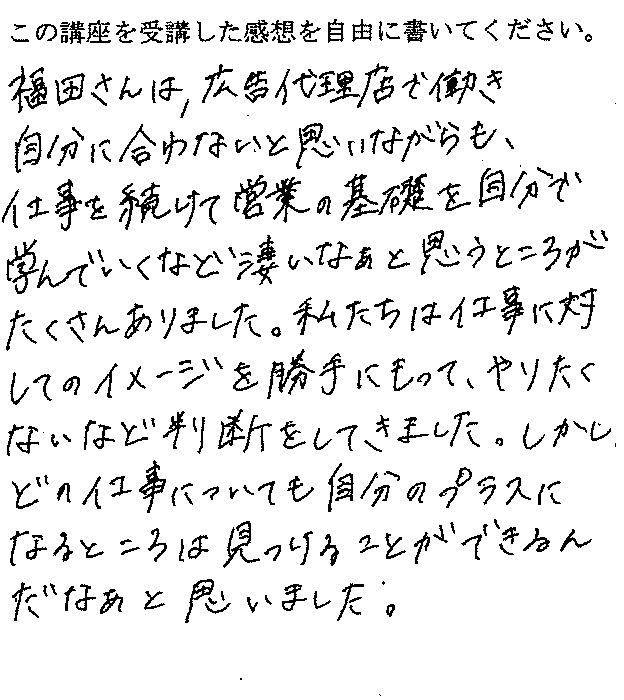 この講座を受講した感想を自由に書いてください。
福田さんは、広告代理店で働き
自分に合わないと思いながらも、
仕事を続けて営業の基礎を自分で
学んでいくなど凄いなぁと思うところが
たくさんありました。私たちは仕事に対
してのイメージを勝手にもって、やりたく
ないなど判断をしてきました。しかし
どの仕事についても自分のプラスに
なるところは見つけることができるん
だなぁと思いました。